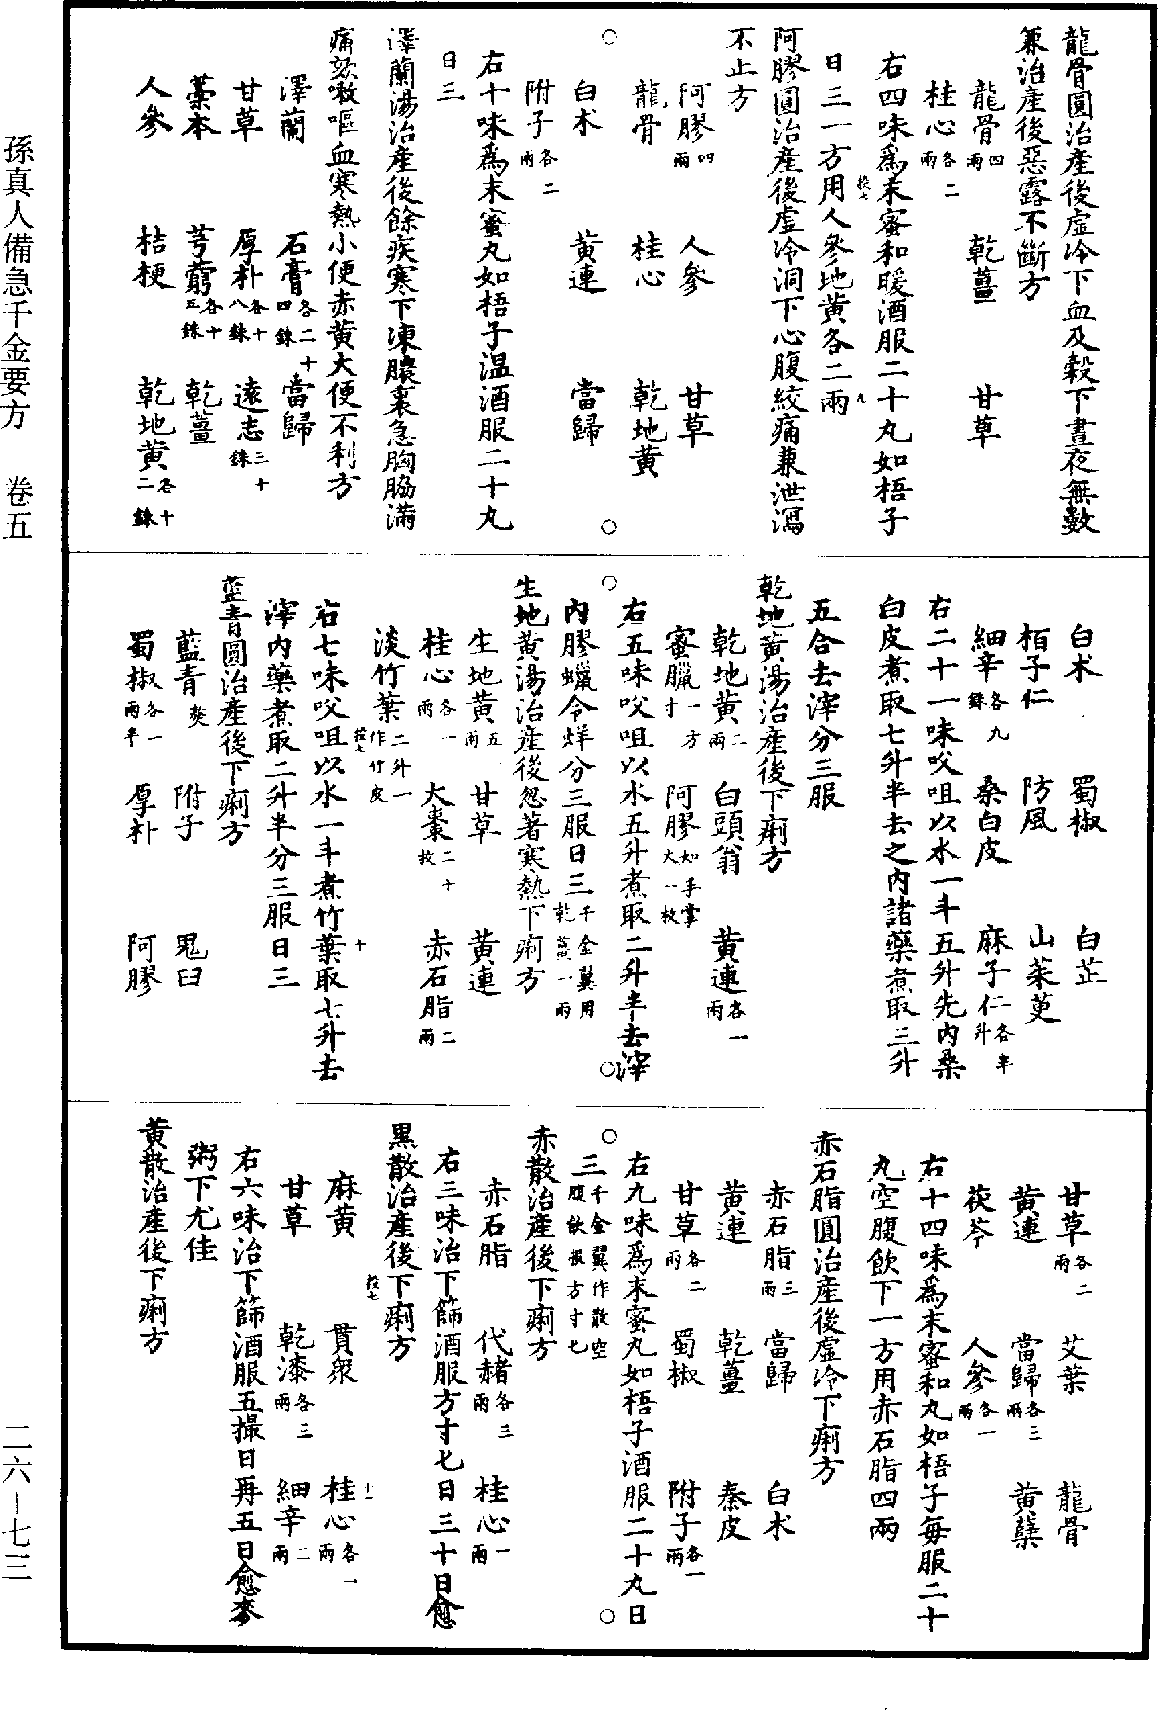 龍骨圓治產後虛冷下血及穀下晝夜無數
兼治產後惡露不斷方
龍骨四兩 乾薑 甘草
桂心各二兩
右四味爲末蜜和暖酒服二十丸如梧子
日三一方用人參地黃各二兩
阿膠圓治產後虛冷洞下心腹絞痛兼泄瀉
不止方
阿膠四兩 人參 甘草
龍骨 桂心 乾地黃
白朮 黃連 當歸
附子各二兩
右十味爲末蜜丸如梧子温酒服二十丸
日三
澤蘭湯治產後餘疾寒下凍膿裏急胸脇滿
痛欬嗽嘔血寒熱小便赤黃大便不利方
澤蘭 石膏各二十四銖 當歸
甘草 厚朴各十八銖 遠志三十銖
藁本 芎藭各十五銖 乾薑
人參 桔梗 乾地黃各十二銖
白朮 蜀椒 白芷
栢子仁 防風 山茱萸
細辛各九銖 桑白皮 麻子仁各半升
右二十一味㕮咀以水一斗五升先內桑
白皮煮取七升半去之內諸藥煮取三升
五合去滓分三服
乾地黃湯治產後下痢方
乾地黃二兩 白頭翁 黃連各一兩
蜜臘一方寸 阿膠如手掌大一枚
右五味㕮咀以水五升煮取二升半去滓
內膠蠟令烊分三服日三千金翼用乾薑一兩
生地黃湯治產後忽著寒熱下痢方
生地黃五兩 甘草 黃連
桂心各一兩 大棗二十枚 赤石脂二兩
淡竹葉二升一作竹皮
右七味㕮咀以水一斗煮竹葉取七升去
滓內藥煮取二升半分三服日三
藍青圓治產後下痢方
藍青熬 附子 鬼臼
蜀椒各一兩半 厚朴 阿膠
甘草各二兩 艾葉 龍骨
黃連 當歸各三兩 黃蘗
茯苓 人參各一兩
右十四味爲末蜜和丸如梧子每服二十
丸空腹飲下一方用赤石脂四兩
赤石脂圓治產後虛冷下痢方
赤石脂三兩 當歸 白朮
黃連 乾薑 秦皮
甘草各二兩 蜀椒 附子各一兩
右九味爲末蜜丸如梧子酒服二十丸日
三千金翼作散空腹飲服方寸匕
赤散治產後下痢方
赤石脂 代赭各三兩 桂心一兩
右三味治下篩酒服方寸七日三十日愈
黑散治產後下痢方
麻黃 貫衆 桂心各一兩
甘草 乾漆各三兩 細辛二兩
右六味治下篩酒服五撮日再五日愈麥
粥下尤佳
黃散治產後下痢方
孫真人備急千金要方 卷五 二六—七三